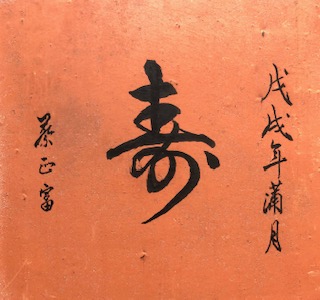 戊戌年蒲月
寿
蔡正富